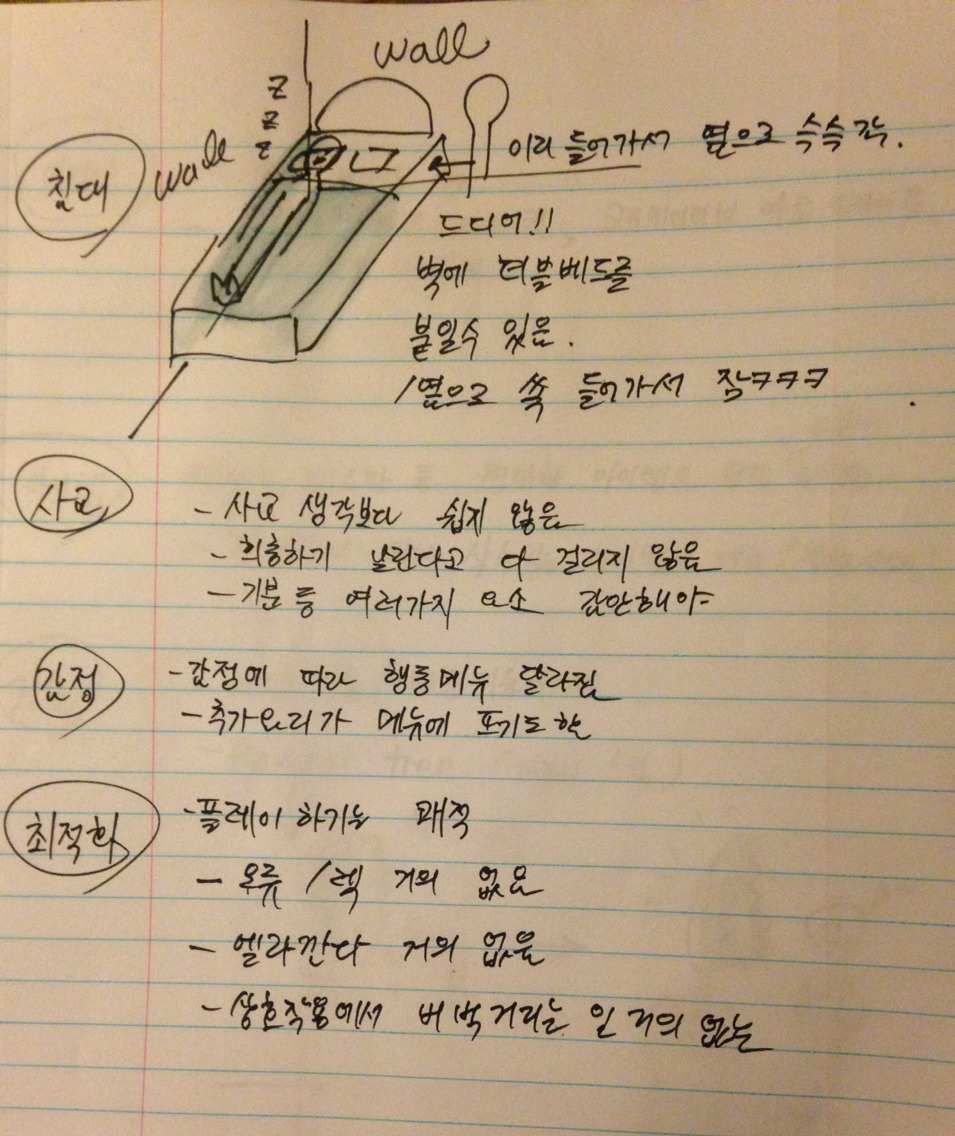 wall
z
z
z
wall
침대
이리 들어가서 옆으로 슥슥 감.
드디어!!
벽에 더블베드를
붙일수 있음.
/옆으로 쏙 들어가서 잠ㅋㅋㅋ
사교
- 사교 생각보다 쉽지 않음
- 희롱하기 날린다고 다 걸리지 않음
- 기분 등 여러가지 요소 감안해야
감정
- 감정에 따라 행동메뉴 달라짐
- 추가요리가 메뉴에 뜨기도 함
최적화
- 플레이 하기는 쾌적
- 오류 /렉 거의 없음
- 엘라깐다 거의 없음
- 상호작용에서 버벅거리는 인 거의 없는